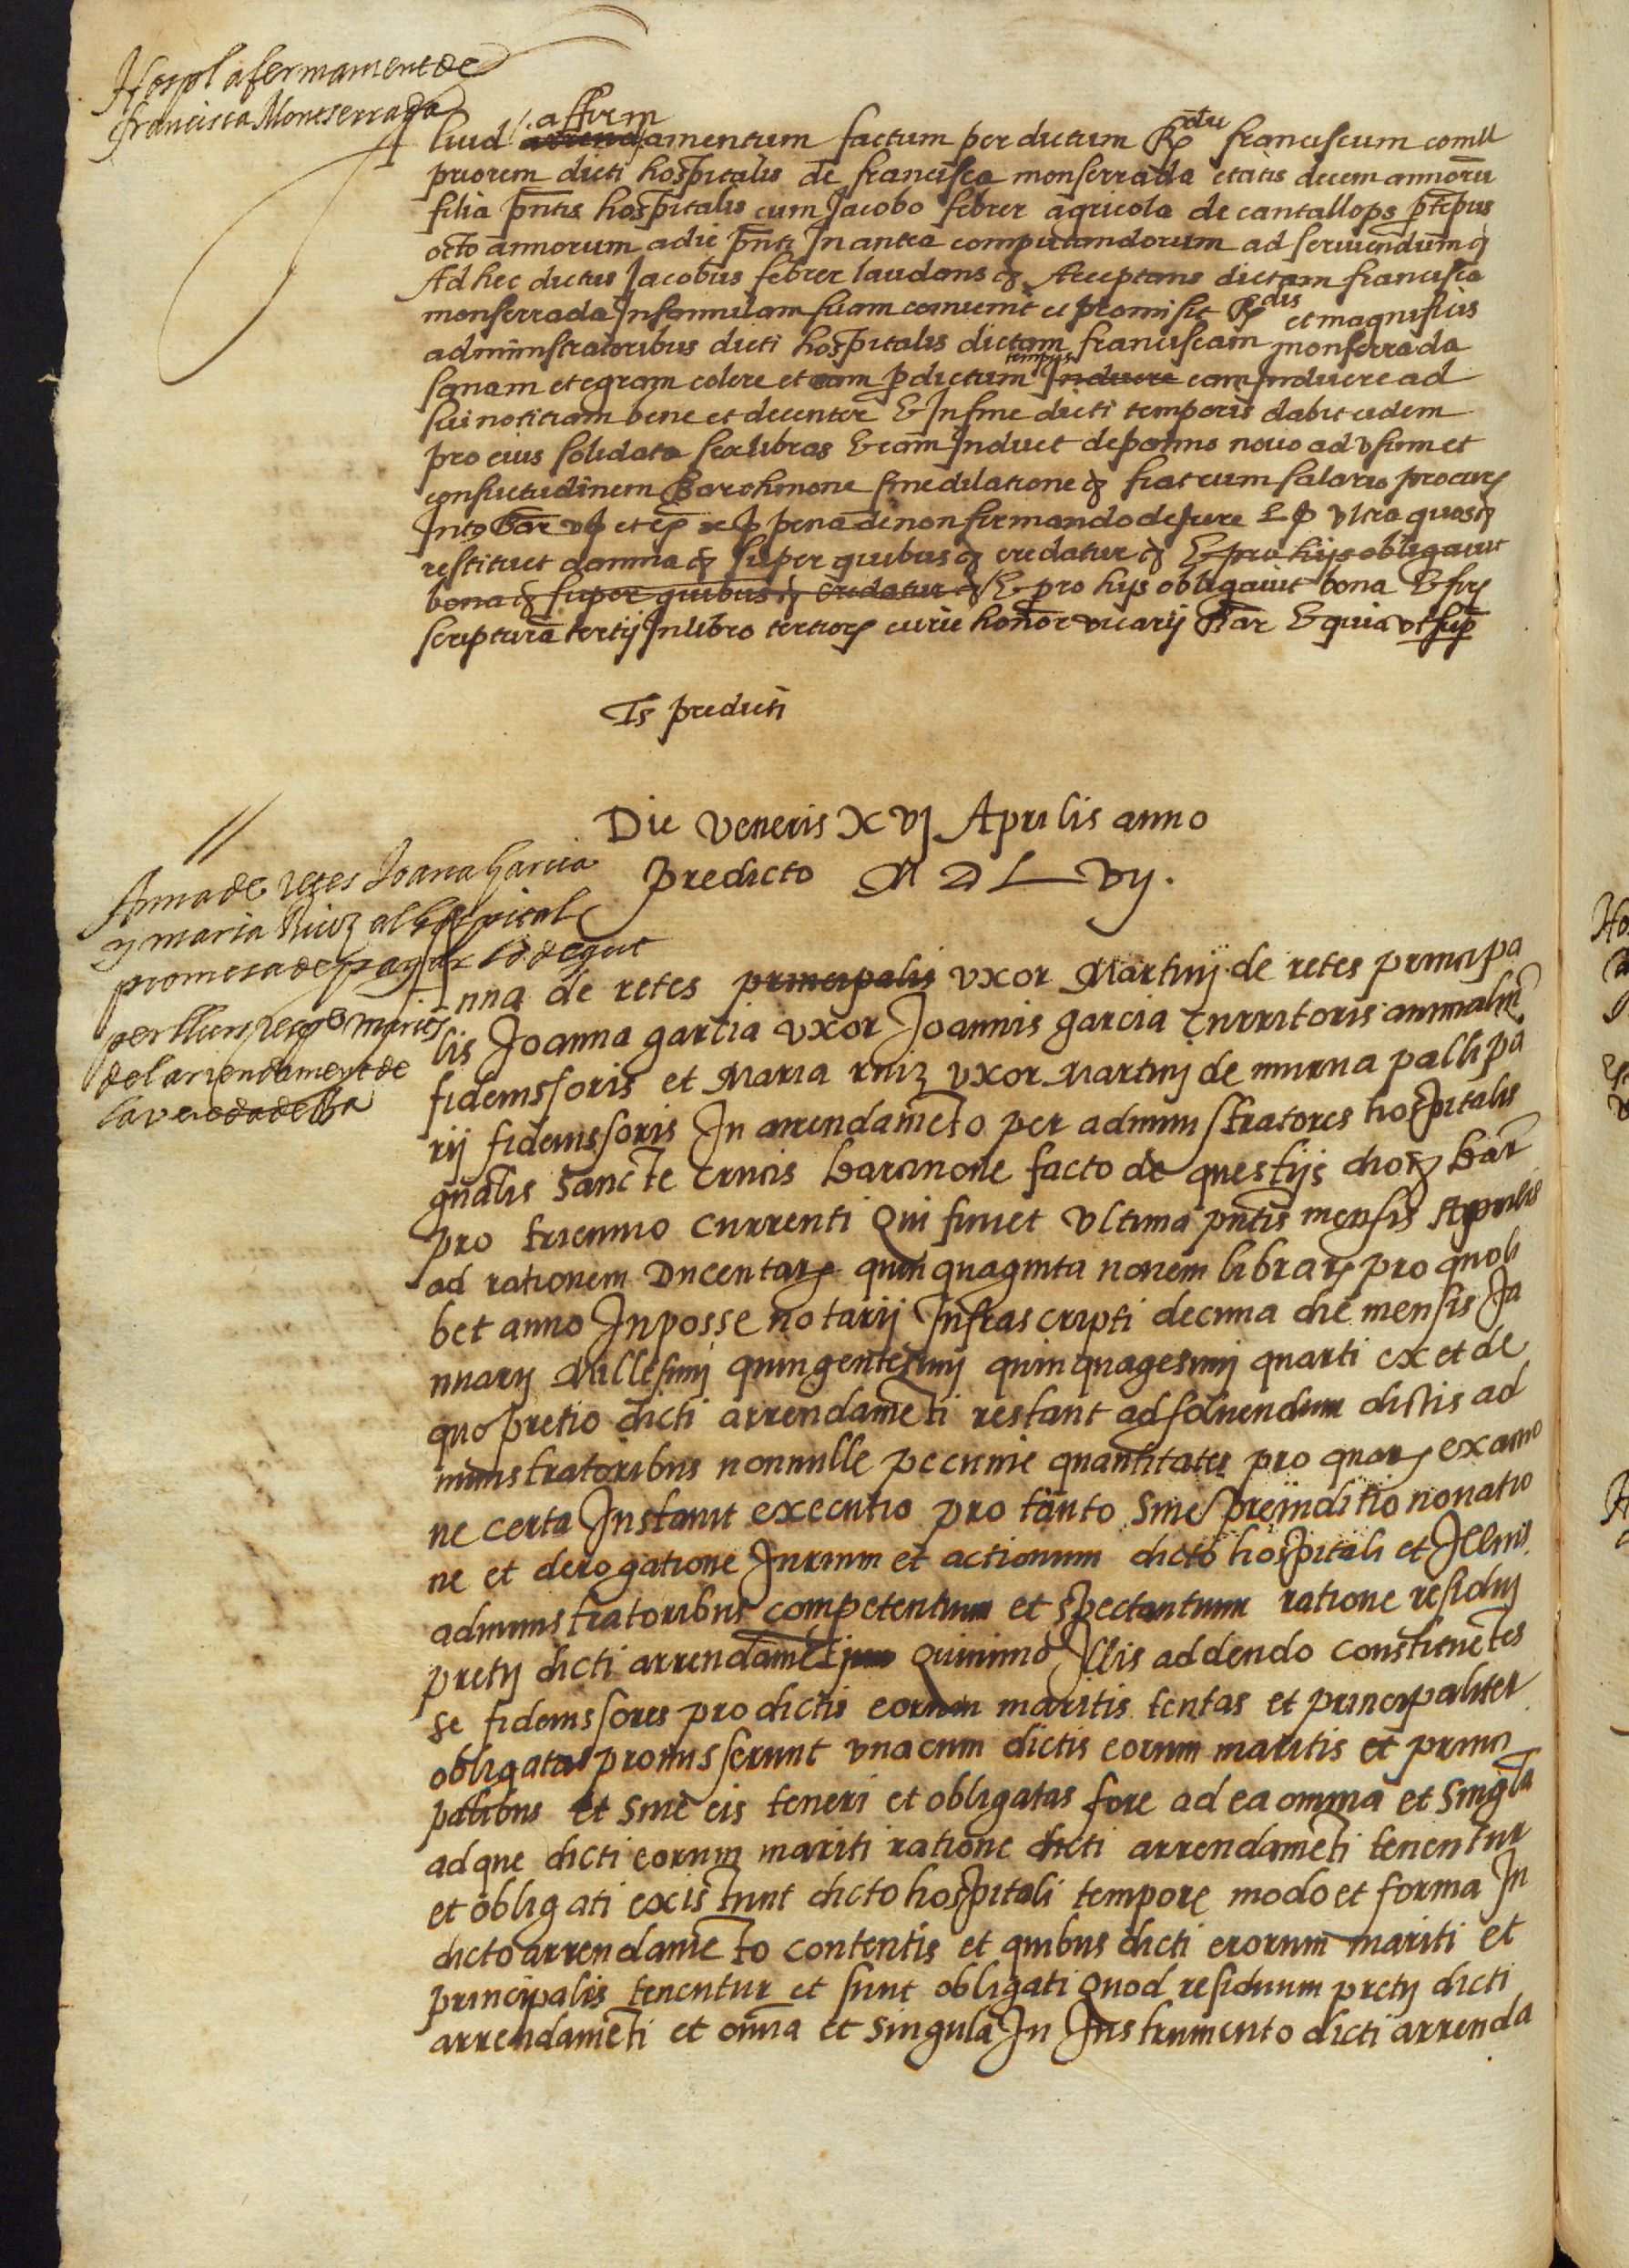 Hospl afermament de
francisca Monserrada
affirm
Aliud arrendamentum factum per dictum R̄dū franciscum comll
priorem dicti hospitalis de francisca monserrada etatis decem annorū
filia pn̄tis hospitalis cum Jacobo febrer agricola de cantallops p tēpus
octo annorum a die pn̄ti In antea computandorum ad seruiendum &
Ad hec dictus Jacobus febrer laudans & Acceptans dictam francisca
monserrada In famulam suam conuenit et promisit R dis et magnificis
administratoribus dicti hospitalis dictam franciscam monserrada
sanam et egram colere et eam p dictum tempus Induere eam Induere ad
sui notitiam bene et decenter & In fine dicti temporis dabit eidem
pro eius solidata sex libras & eam Induet de panno nouo ad vsum et
consuetudinem Barchinone sine dilatione & fiat cum salario procur
Intus Bar vs et ex xs pena de non firmando de Jure L s vltra quas &
restituet damna & super quibus & credatur & & pro hijs obligauit
bona & super quibus & credatur & & pro hijs obligauit bona & fir
scriptura tertij In libro tertiorum curie honor vicarij Bar & quia vt sup
Ts predicti
Die veneris XVJ Aprilis anno
predicto M D L Vij.
Anna de retes Joana Garcia
y maria Ruiz al hospital
promesa de pagar lo degut
per llurs reço marits
del arrendament de
la veredadella
Anna de retes principalis vxor Martinij de retes principa
lis Joanna garcia vxor Joannis garcia Curritoris animaliū
fideiussoris et Maria ruiz vxor Martinj de murua pallipa
rij fideiussoris In arrendamēto per administratores hospitalis
gn̄alis Sancte Crucis barcinone facto de questijs dioc bar
pro triennio currenti qui finiet vltima pn̄tis mensis Aprilis
ad rationem Ducentar quinquaginta nouem librar pro quoli
bet anno In posse notarij Infrascripti decima die mensis Ja
nuarij Millesimj quingentesimj quinquagesimj quarti ex et de
quo pretio dicti arrendamēti restant ad soluendum dictis ad
ministratoribus nonnulle peccunie quantitates pro quar exactio
ne certa Instatur executio pro tanto sine preiuditio nouatio
ne et derogatione Jurium et actionum dicto hospitali et Illius
administratoribus competentium et spectantium ratione residuj
pretij dicti arrendamēti quinimo Illis addendo constituētes
se fideiussores pro dictis eorum maritis tentas et principaliter
obligatas promisserunt vnacum dictis eorum maritis et princi
palibus et sine eis teneri et obligatas fore ad ea omnia et singla
ad que dicti eorum mariti ratione dicti arrendamēti tenentur
et obligati existunt dicto hospitali tempore modo et forma In
dicto arrendamēto contentis et quibus dicti erorum mariti et
principalis tenentur et sunt obligati quod residuum pretij dicti
arrendamēti et om̄ia et singula In Instrumento dicti arrenda